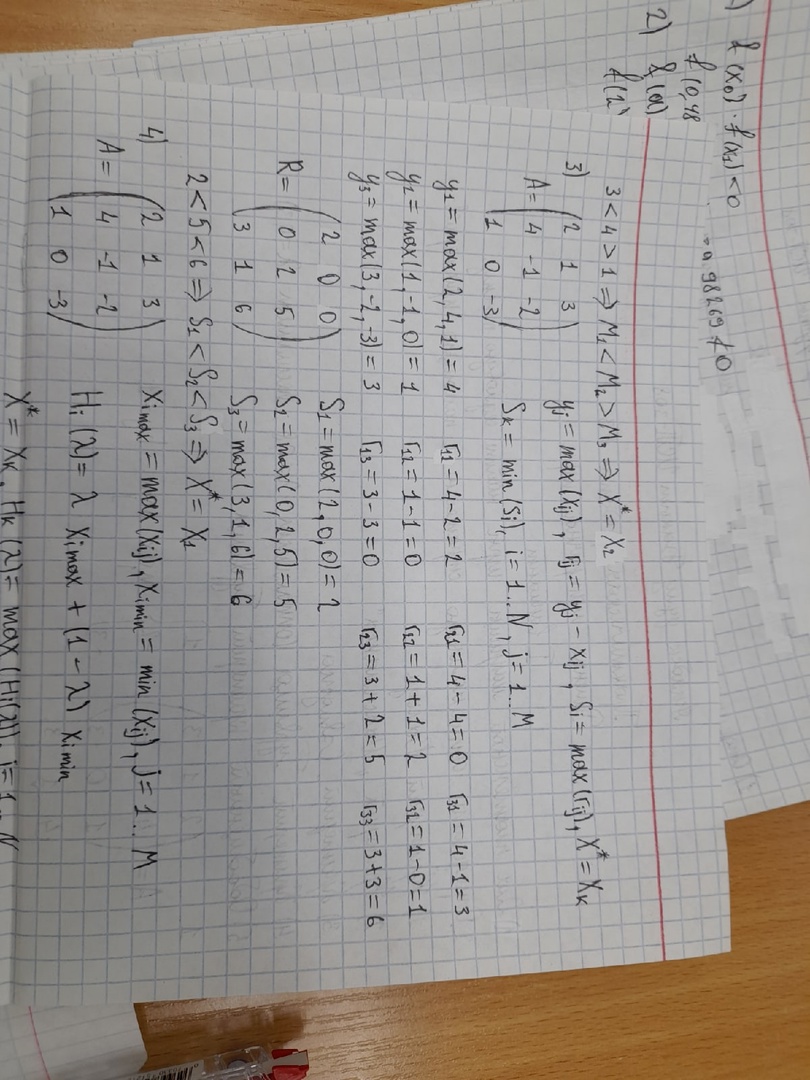 ) f(x₀)·f(x₁)<0
f(0,48
2) f(a)
f(1)
3 < 4 > 1 ⇒ M₁ < M₂ > M₃ ⇒ X* = X₂
3)
A = (2 1 3)
(4 -1 -2)
(1 0 -3)
yj = max(xij), rij = yj - xij, Si = max(rij), X* = Xк
Sк = min(Si), i = 1..N, j = 1..M
y₁ = max(2,4,1) = 4 r₁₁ = 4-2 = 2 r₂₁ = 4-4 = 0 r₃₁ = 4-1 = 3
y₂ = max(1,-1,0) = 1 r₁₂ = 1-1 = 0 r₂₂ = 1+1 = 2 r₃₂ = 1-0 = 1
y₃ = max(3,-2,-3) = 3 r₁₃ = 3-3 = 0 r₂₃ = 3+2 = 5 r₃₃ = 3+3 = 6
R = (2 0 0) S₁ = max(2,0,0) = 2
(0 2 5) S₂ = max(0,2,5) = 5
(3 1 6) S₃ = max(3,1,6) = 6
2 < 5 < 6 ⇒ S₁ < S₂ < S₃ ⇒ X* = X₁
4)
A = (2 1 3)
(4 -1 -2)
(1 0 -3)
xi max = max(xij), xi min = min(xij), j = 1..M
Hi(λ) = λ xi max + (1-λ) xi min
X* = Xк, Hк(λ) = max(Hi(λ)), i = 1..N